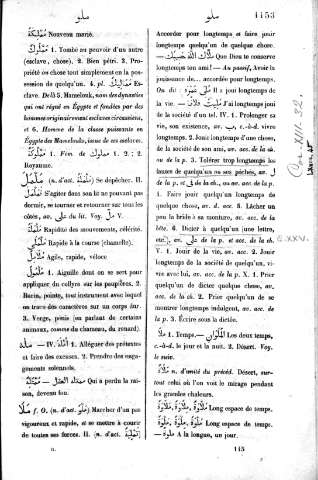 ملو
ملو
1153
مملكة Nouveau marié.
مملوك 1. Tombé au pouvoir d'un autre
(esclave, chose). 2. Bien pétri. 3. Pro-
priété ou chose tout simplement en la pos-
session de quelqu'un. 4. pl. مماليك Es-
clave. Delà 5. Mamelouk, nom des dynasties
qui ont régné en Égypte et fondées par des
hommes originairement esclaves circassiens,
et 6. Homme de la classe puissante en
Égypte des Mamelouks, issue de ces esclaves.
مملوكة 1. Fém. de مملوك 1. 2; 2.
Royaume.
ململ (n. d'act. ململة) Se dépêcher. II.
تململ S'agiter dans son lit ne pouvant pas
dormir, se tourner et retourner sur tous les
côtés, av. على du lit. Voy. مل V.
ململة Rapidité des mouvements, célérité.
ململى Rapide à la course (chamelle).
ململ Agile, rapide, véloce
1. Aiguille dont on se sert pour
appliquer du collyre sur les paupières. 2.
Burin, pointe, tout instrument avec lequel
on trace des caractères sur un corps dur.
3. Verge, pénis (en parlant de certains
animaux, comme du chameau, du renard)
— IV. 1. Alléguer des prétextes
et faire des excuses. 2. Prendre des enga-
gements solennels.
Qui a perdu la rai-
son, devenu fou.
ملا f. O. (n. d'act. ملو) Marcher d'un pas
vigoureux et rapide, et se mettre à courir
de toutes ses forces. II. (n. d'act.
Accorder pour longtemps et faire jouir
longtemps quelqu'un de quelque chose.
ملاك الله حبيبك — Que Dieu te conserve
longtemps ton ami! — Au passif, Avoir la
jouissance de... accordée pour longtemps.
On dit: ملى عمره Il a joui longtemps de
la vie. ملیت فلانا J'ai longtemps joui
de la société d'un tel. IV. 1. Prolonger sa
vie, son existence, av. ب, c.-à-d. vivre
longtemps. 2. Jouir longtemps d'une chose,
de la société de son ami, av. acc. de la ch.
ou de la p. 3. Tolérer trop longtemps les
fautes de quelqu'un ou ses péchés, av. ل
de la p. et في de la ch. ou av. acc. de la p.
4. Faire jouir quelqu'un longtemps de
quelque chose, av. d. acc. 5. Lâcher un
peu la bride à sa monture, av. acc. de la
bête. 6. Dicter à quelqu'un (une lettre,
etc.), av. على de la p. et acc. de la ch.
V. 1. Jouir de la vie, av. acc. 2. Jouir
longtemps de la société de quelqu'un, vi-
vre avec lui, av. acc. de la p. X. 1. Prier
quelqu'un de dicter quelque chose, av.
acc. de la ch. 2. Prier quelqu'un de se
montrer longtemps indulgent, av. acc. de la
p. 3. Écrire sous la dictée.
ملا 1. Temps.— الملوان Les deux temps,
c.-à-d. le jour et la nuit. 2. Désert. Voy.
le suiv.
ملاة n. d'unité du précéd. Désert, sur-
tout celui où l'on voit le mirage pendant
les grandes chaleurs.
ملاوة, ملاوة, ملاوة Long espace de temps.
ملوة, ملوة, ملوة Long espace de temps.
— A la longue, un jour.
II.
145
Cor. XIII. 32.
XXV.